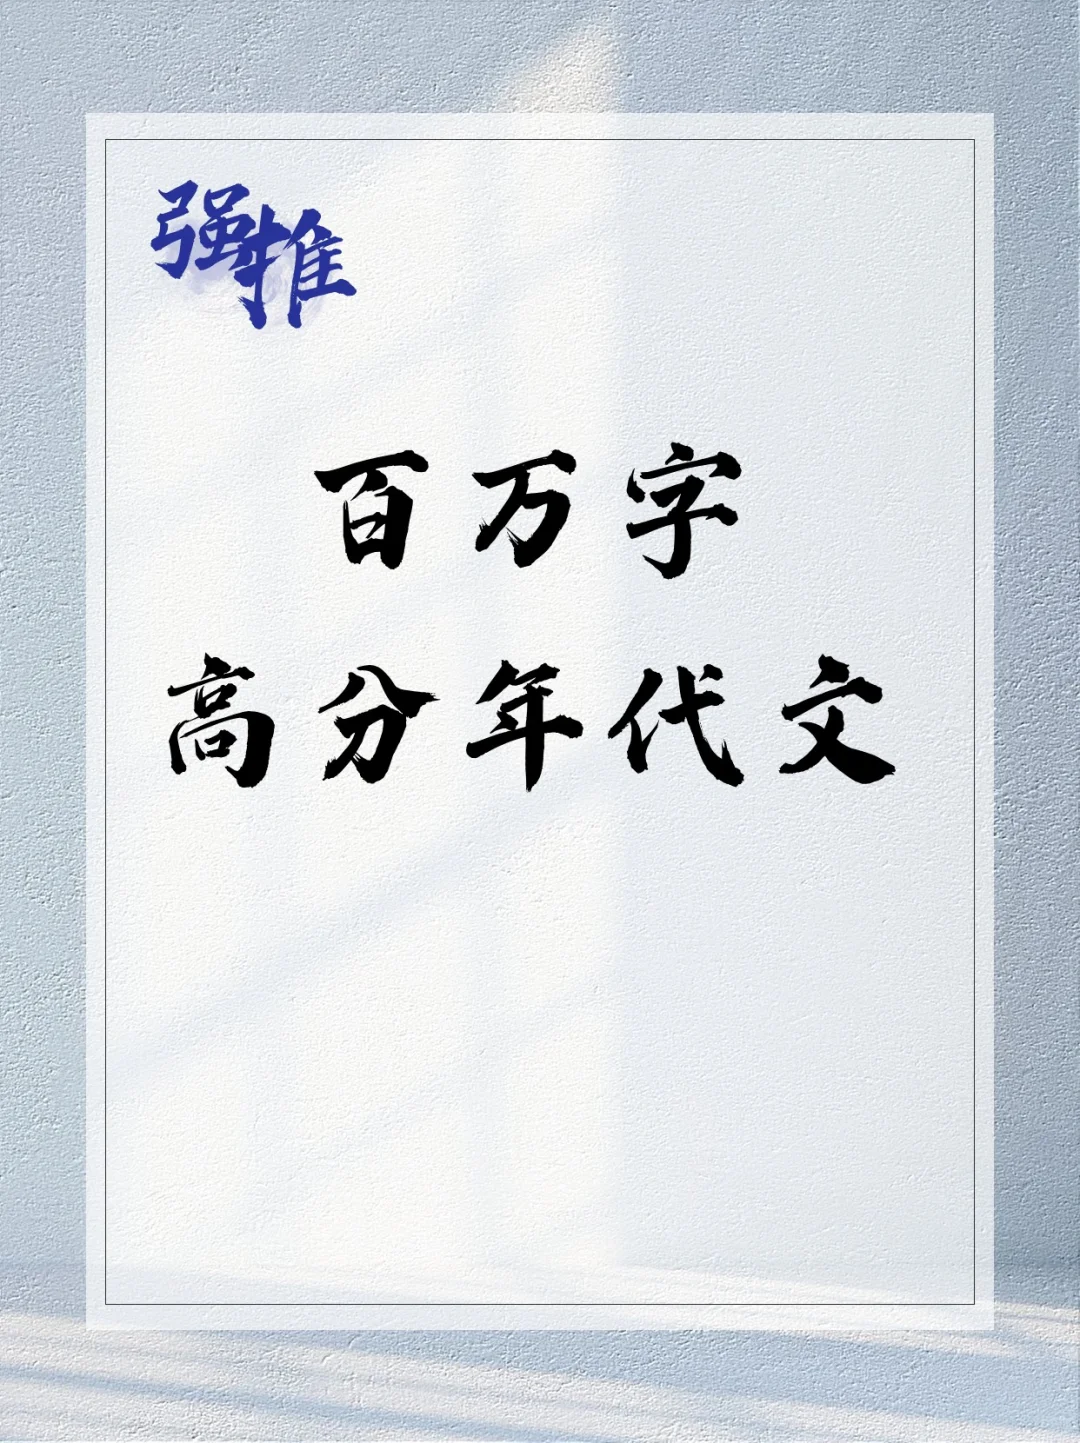 强推
百万字
高分年代文